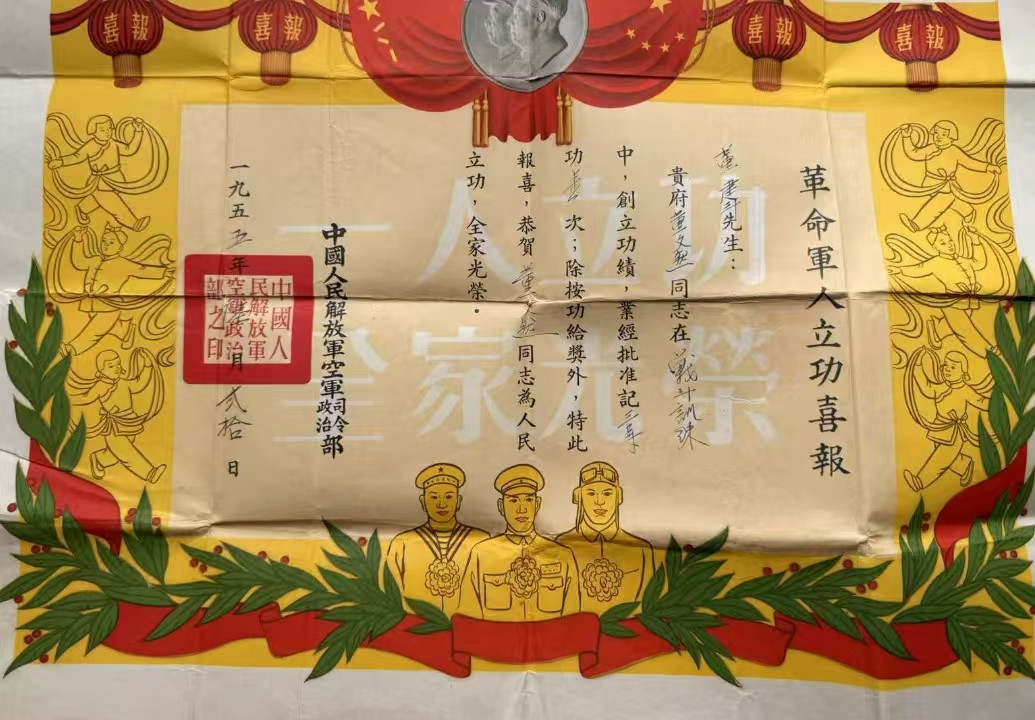 喜報
喜報
喜報
喜報
一人立功
全家光榮
革命軍人立功喜報
董先生：
貴府董文同志在戰斗訓練
中，創立功績，業經批准記三等
功壹次；除按功給獎外，特此
報喜，恭賀董文同志為人民
立功，全家光榮。
中國人民解放軍空軍司令政治部
一九五五年月弍拾日
中國人
民解放軍
空軍政治
部之印